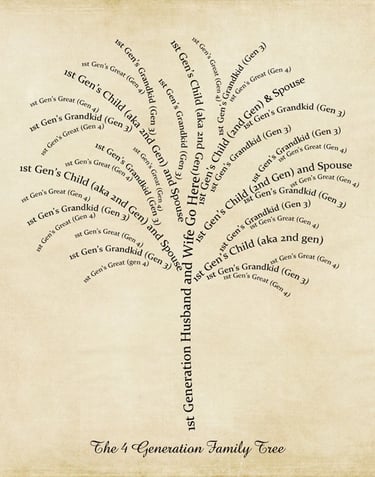 1st Gen's Grandkid (Gen 3)
1st Gen's Child (aka 2nd Gen)
1st Gen's Great (Gen 4)
1st Gen's Grandkid (Gen 3)
1st Gen's Great (Gen 4)
1st Gen's Child (aka 2nd Gen) and Spouse
1st Gen's Grandkid (Gen 3)
1st Gen's Child (2nd Gen) & Spouse
1st Gen's Great (Gen 4)
1st Gen's Grandkid (Gen 3)
1st Gen's Great (Gen 4)
1st Gen's Grandkid (Gen 3)
1st Gen's Grandkid (Gen 3)
1st Gen's Great (Gen 4)
1st Gen's Grandkid (Gen 3)
1st Gen's Great (Gen 4)
1st Gen's Great (Gen 4)
1st Gen's Child (aka 2nd Gen) and Spouse
1st Gen's Child (2nd Gen) and Spouse
1st Gen's Great (Gen 4)
1st Gen's Grandkid (Gen 3)
1st Gen's Great (Gen 4)
1st Gen's Grandkid (Gen 3)
1st Gen's Grandkid (Gen 3)
1st Gen's Great (Gen 4)
1st Gen's Great (Gen 4)
1st Gen's Child (aka 2nd gen)
1st Gen's Great (Gen 4)
1st Gen's Grandkid (Gen 3)
1st Gen's Great (Gen 4)
1st Gen's Grandkid (Gen 3)
1st Gen's Great (gen 4)
1st Gen's Great (Gen 4)
1st Generation Husband and Wife Go Here
The 4 Generation Family Tree